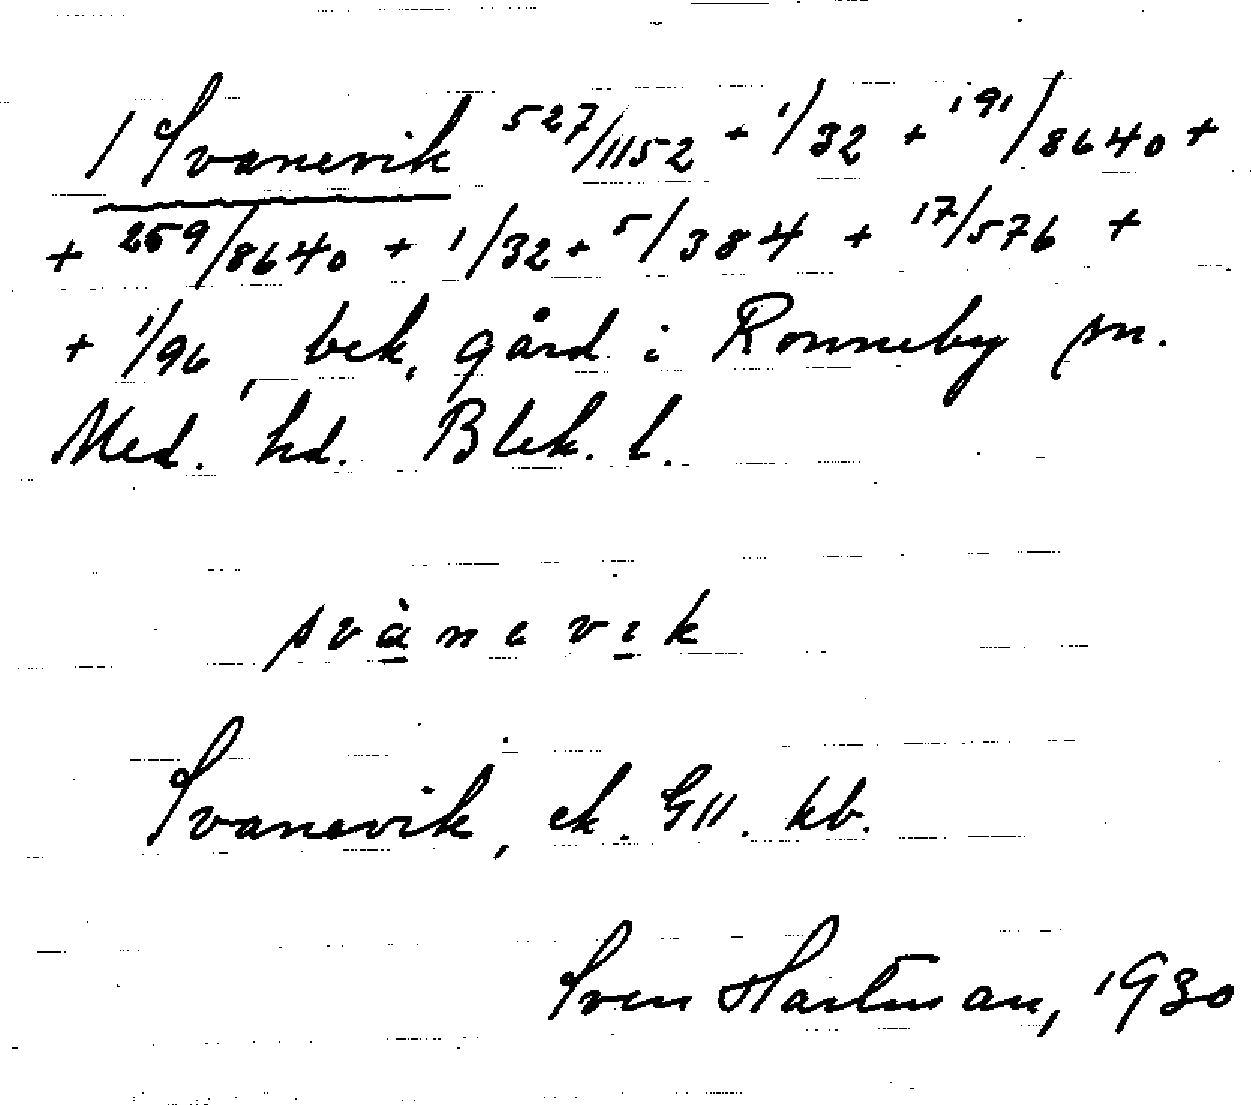 1 Svanevik 527/1152 + 1/32 + 191/8640 +
+ 259/8640 + 1/32 + 5/384 + 17/576 +
+ 1/96, bek. gård i Ronneby sn.
Med. hd. Blek. l.
svànevik
Svanevik, ek. GII. kb.
Sven Hartman, 1930